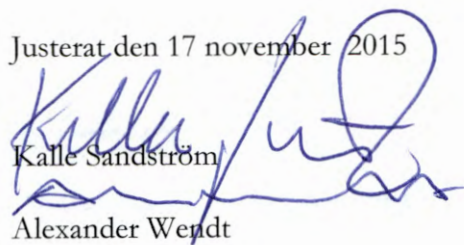 Justerat den 17 november 2015
Kalle Sandström
Alexander Wendt